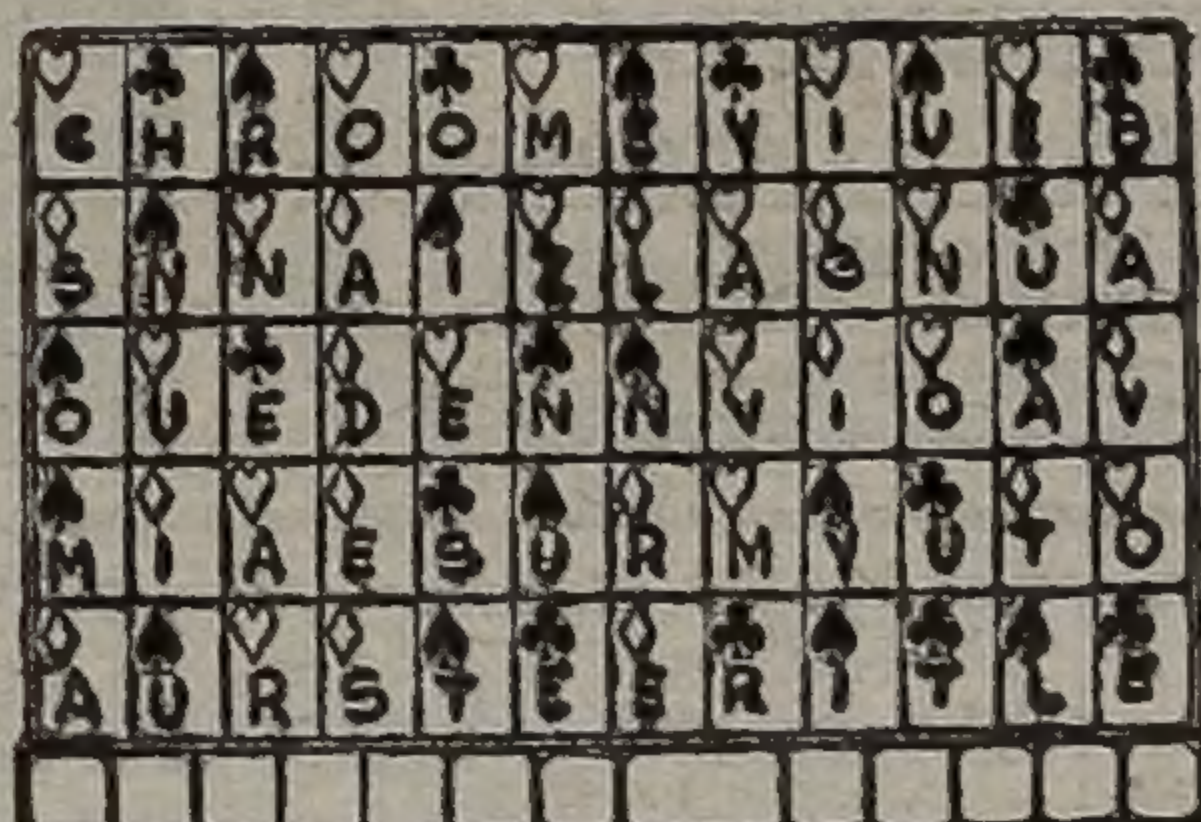 C H R O O M E Y I U E B
S N N A I Z L A G N U A
O U E D E N N V I O A V
M I A E S U R M Y U T O
A U R S T E E R I T L E